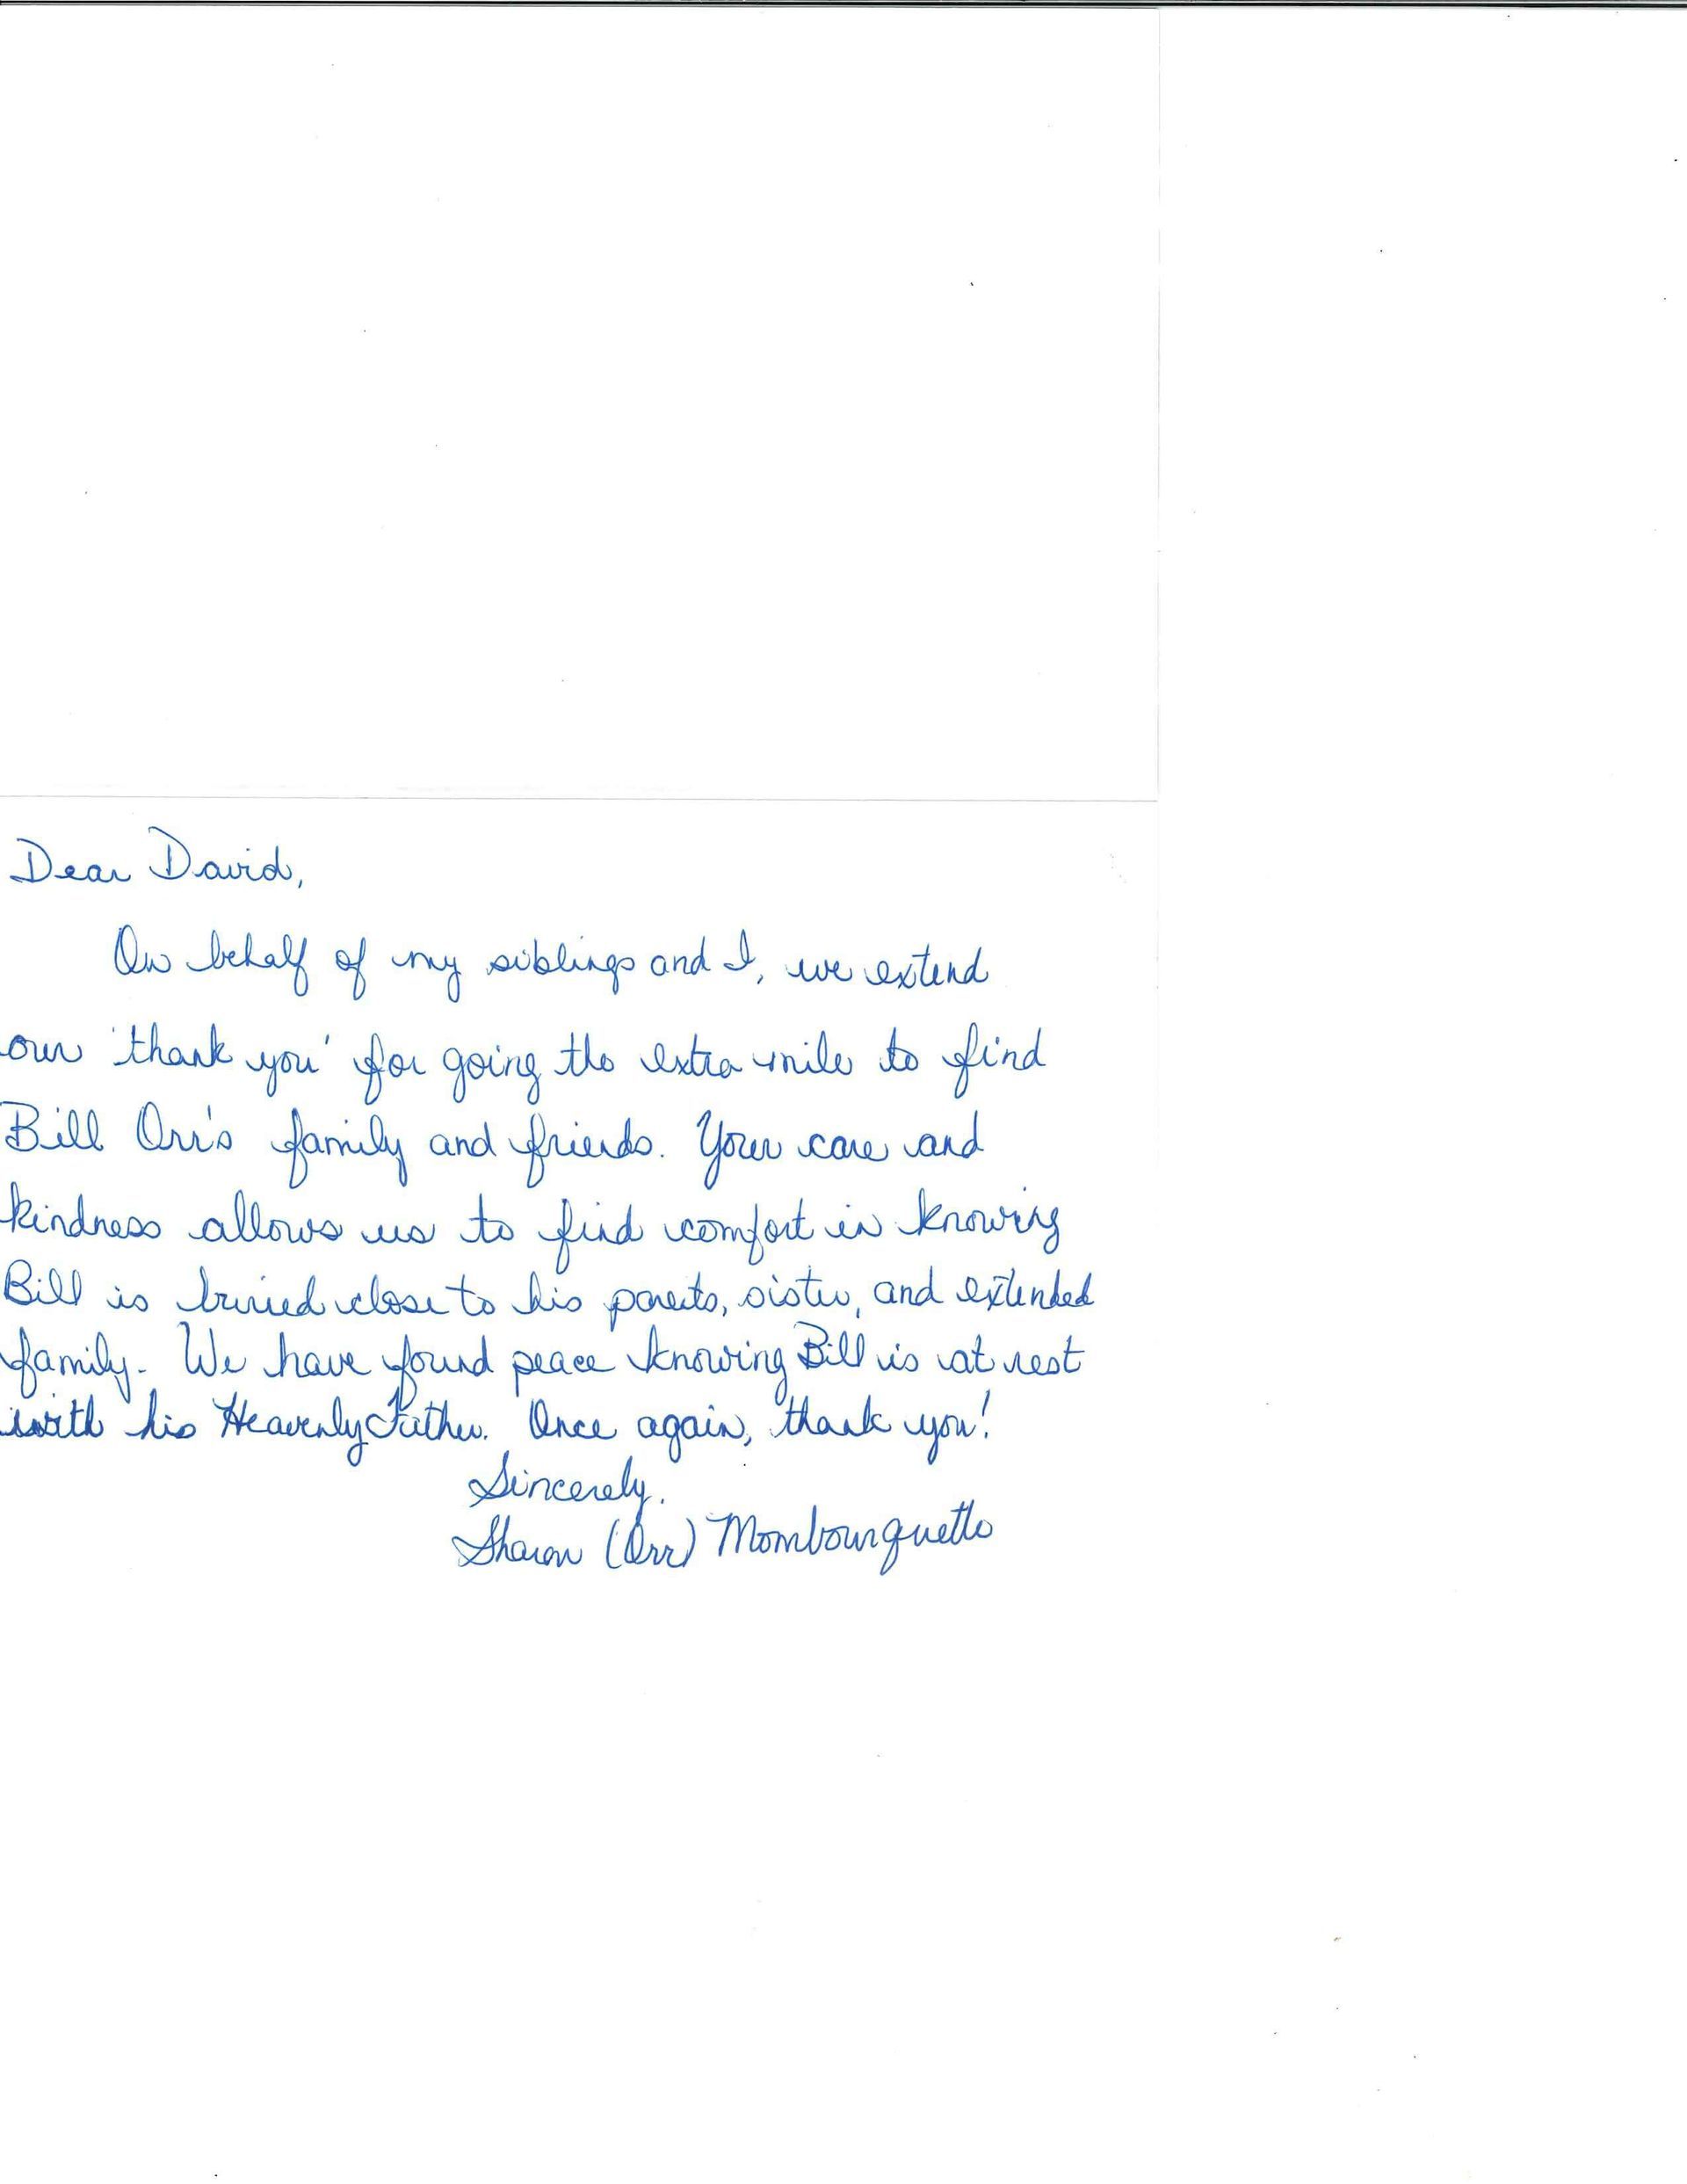 Dear David,
On behalf of my siblings and I, we extend
our 'thank you' for going the extra mile to find
Bill Orr's family and friends. Your care and
kindness allows us to find comfort in knowing
Bill is buried close to his parents, sister, and extended
family. We have found peace knowing Bill is at rest
with his Heavenly Father. Once again, thank you!
Sincerely,
Sharon (Orr) Mombourquette